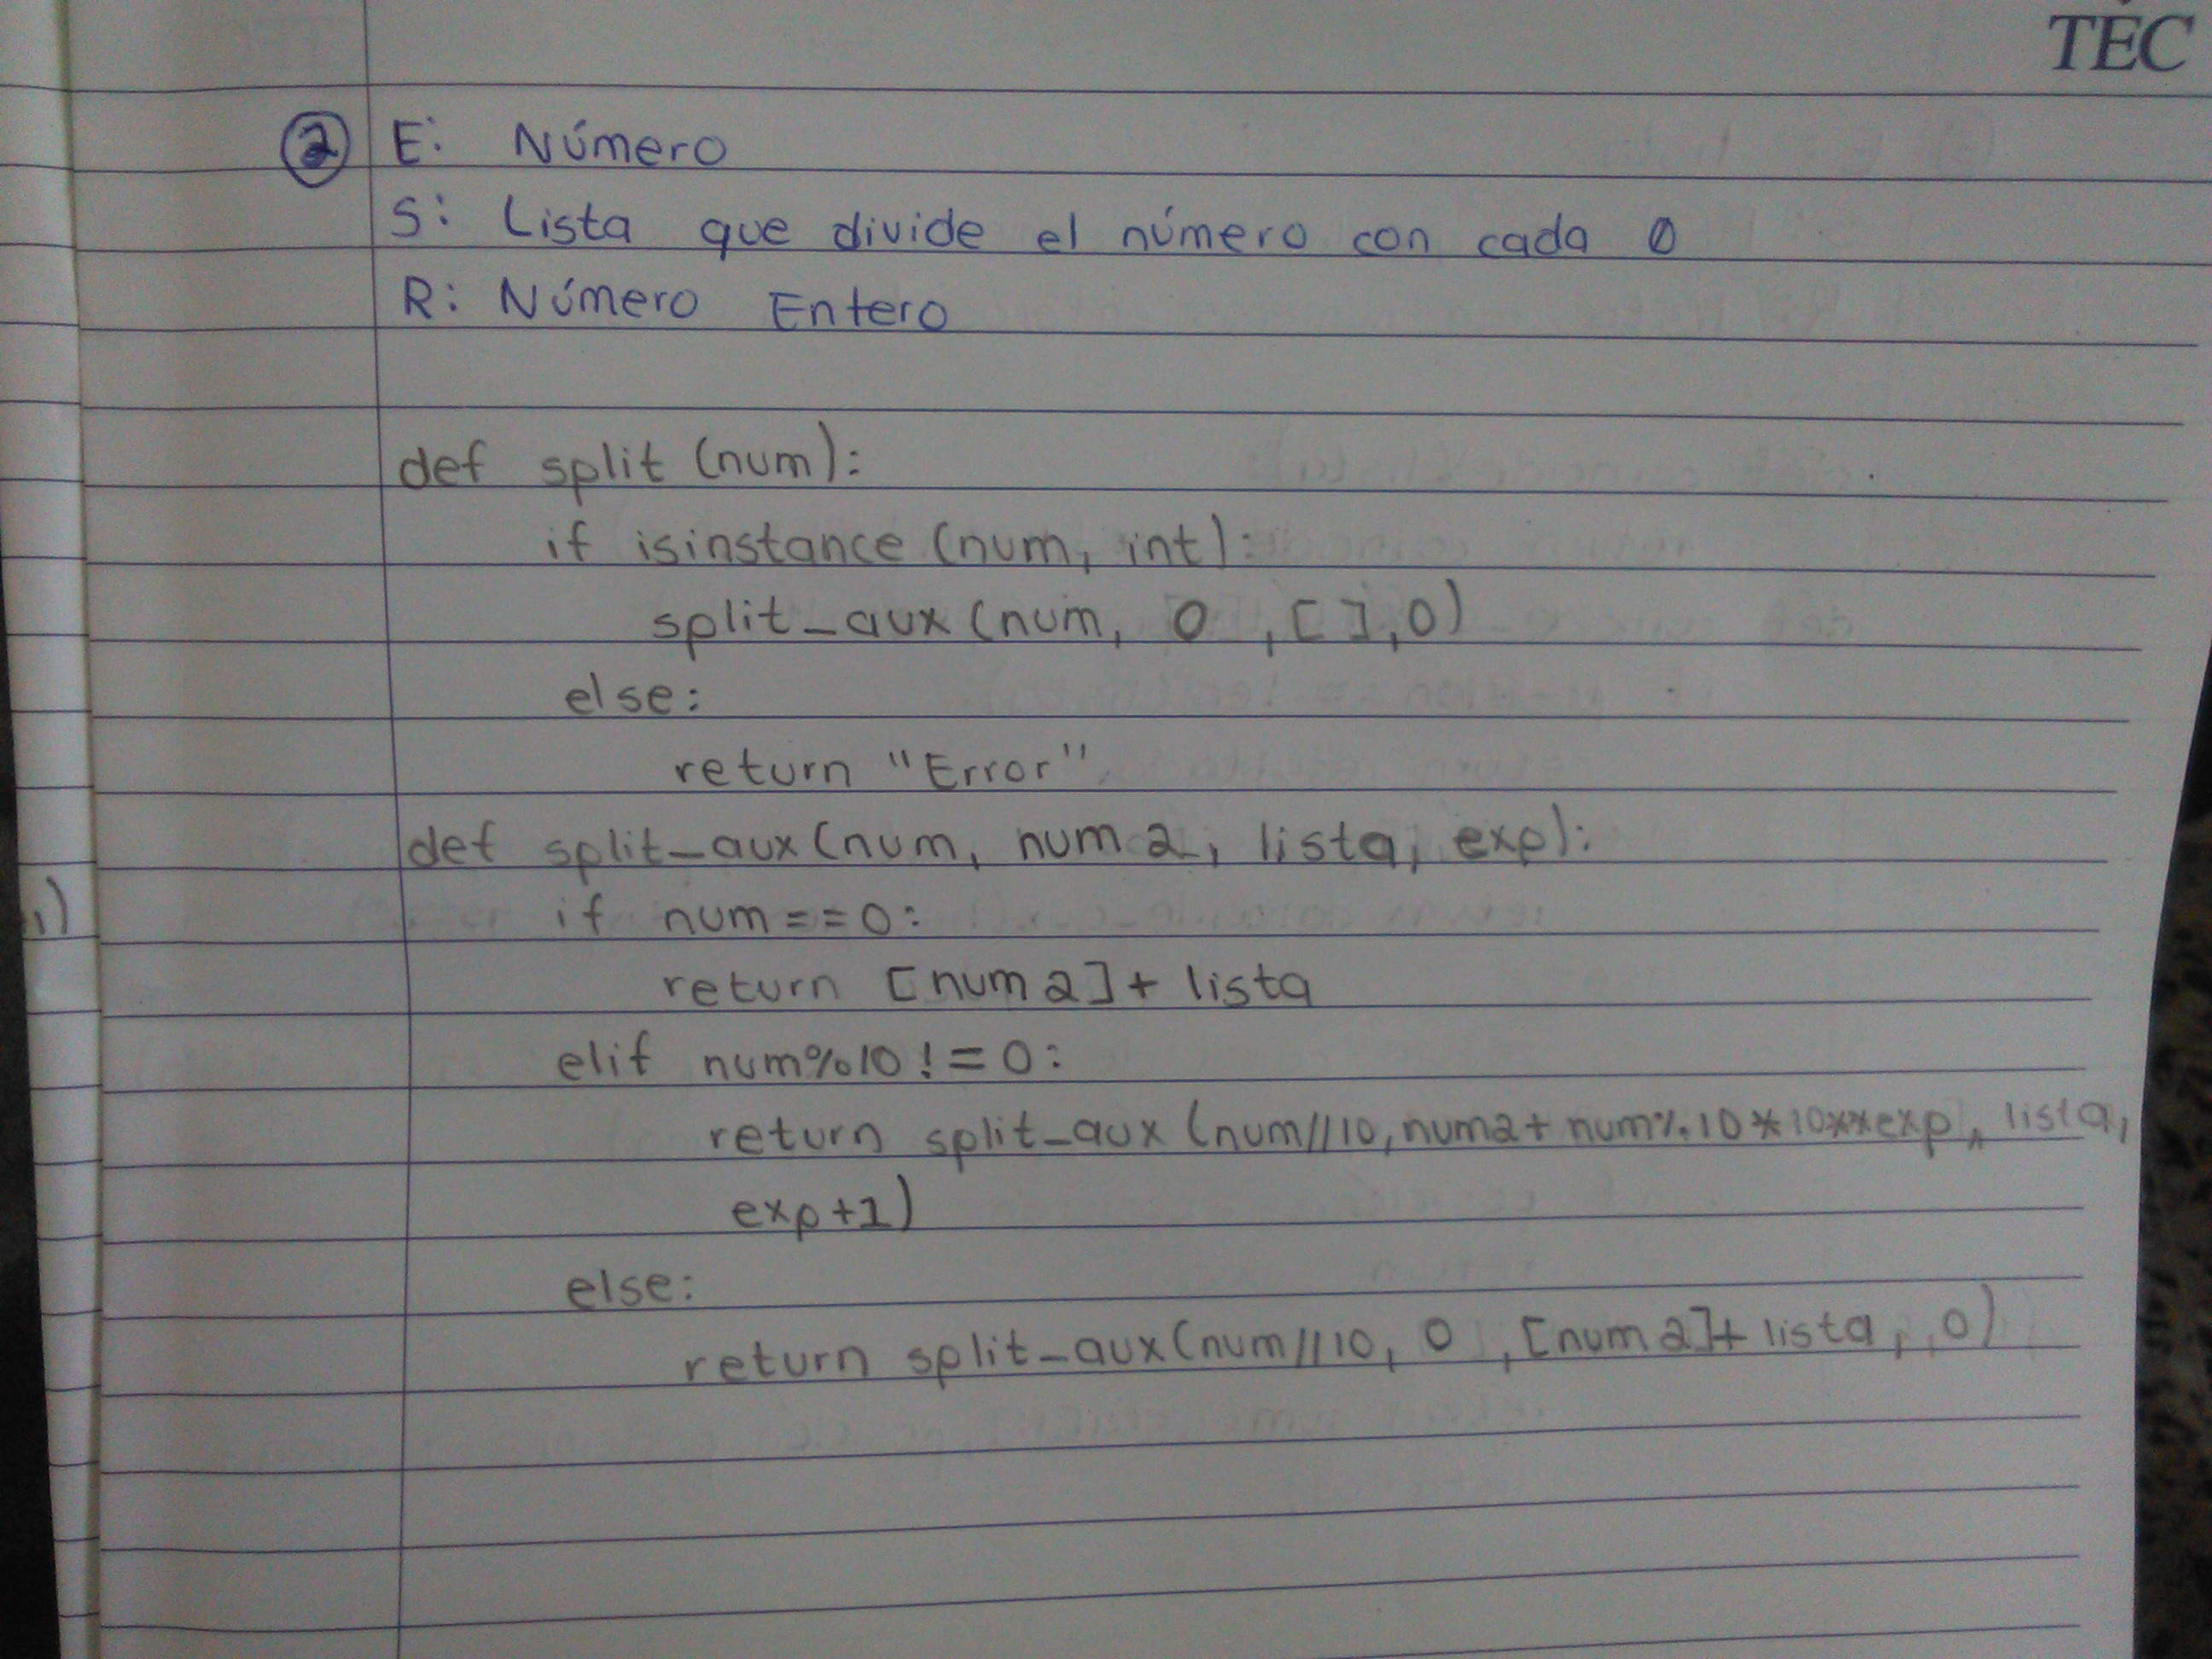 TEC
2 E: Número
S: Lista que divide el número con cada 0
R: Número Entero
def split (num):
if isinstance (num, int):
split_aux (num, 0 , [ ], 0)
else:
return "Error".
def split_aux (num, num2, lista, exp):
1)
if num==0:
return [num2]+ lista
elif num%10 != 0:
return split_aux (num//10, num2+ num%10*10**exp, lista,
exp+1)
else:
return split_aux(num//10, 0 , [num2]+ lista, 0)